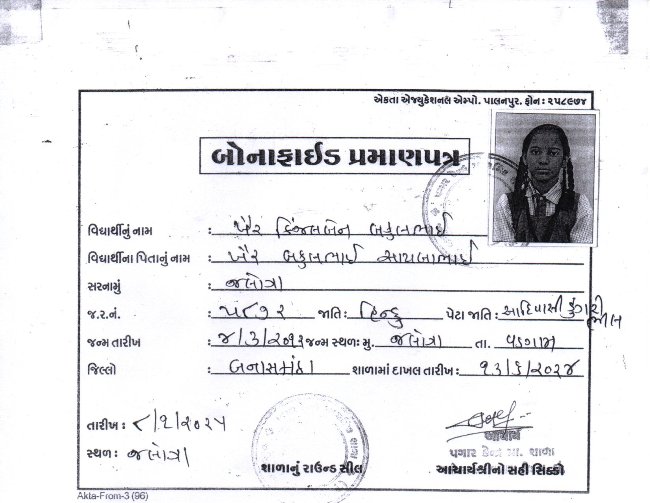 એકતા એજ્યુકેશનલ એમ્પો. પાલનપુર. ફોન : ૨૫૮૯૭૪
બોનાફાઈડ પ્રમાણપત્ર
વિદ્યાર્થીનું નામ : ખૈર કિંજલબેન બકુલભાઈ
વિદ્યાર્થીના પિતાનું નામ : ખૈર બકુલભાઈ
સરનામું : જલોત્રા
જ.ર.નં. : જાતિ : હિન્દુ પેટા જાતિ : આદિવાસી ડુંગરી ભીલ
જન્મ તારીખ : ૪/૩/૨૦૧૩ જન્મ સ્થળ : મુ. જલોત્રા તા. વડગામ
જિલ્લો : બનાસકાંઠા શાળામાં દાખલ તારીખ : ૧૩/૬/૨૦૨૪
તારીખ : ૮/૧/૨૦૨૫
સ્થળ : જલોત્રા
શાળાનું રાઉન્ડ સીલ
આચાર્ય
પગાર કેન્દ્ર પ્રા. શાળા
આચાર્યશ્રીનો સહી સિક્કો
Akta-From-3 (96)